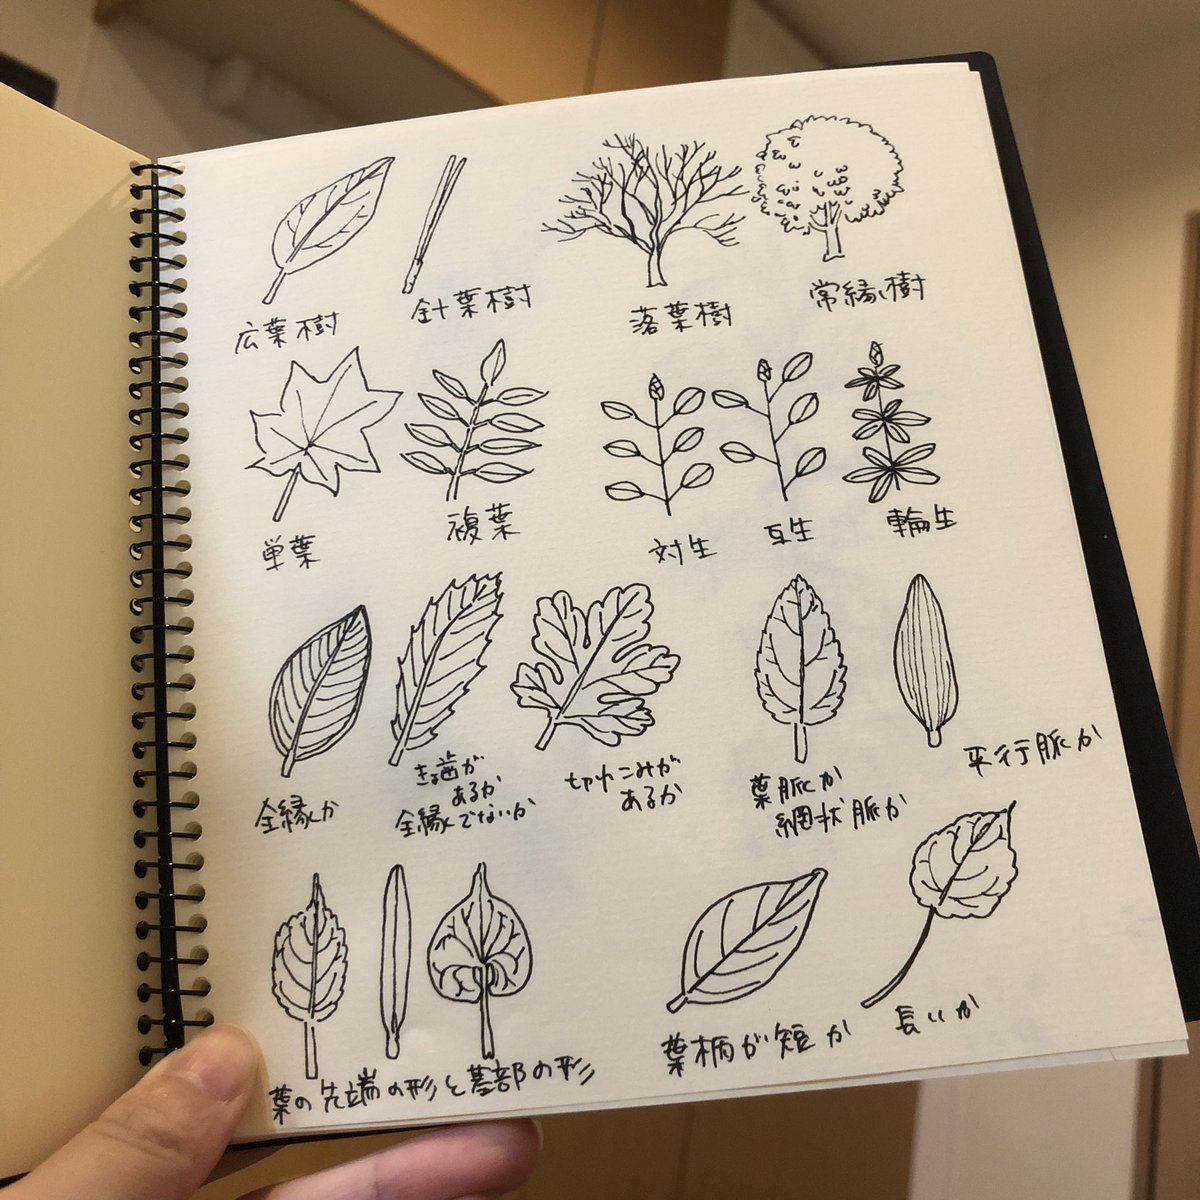 広葉樹
針葉樹
落葉樹
常緑樹
単葉
複葉
対生
互生
輪生
全縁か
きょ歯が
あるか
全縁でないか
切れこみが
あるか
葉脈が
網状脈か
平行脈か
葉の先端の形と基部の形
葉柄が短か
長いか